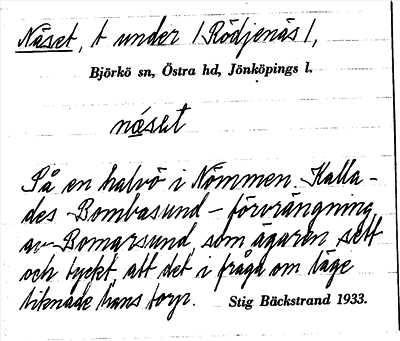 Näset, t under / Rödjenäs /,
Björkö sn, Östra hd, Jönköpings l.
näset
På en halvö i Nömmen. Kalla-
des Bombasund - förvrängning
av Bomarsund, som ägaren sett
och tyckt, att det i fråga om läge
liknade hans torp. Stig Bäckstrand 1933.